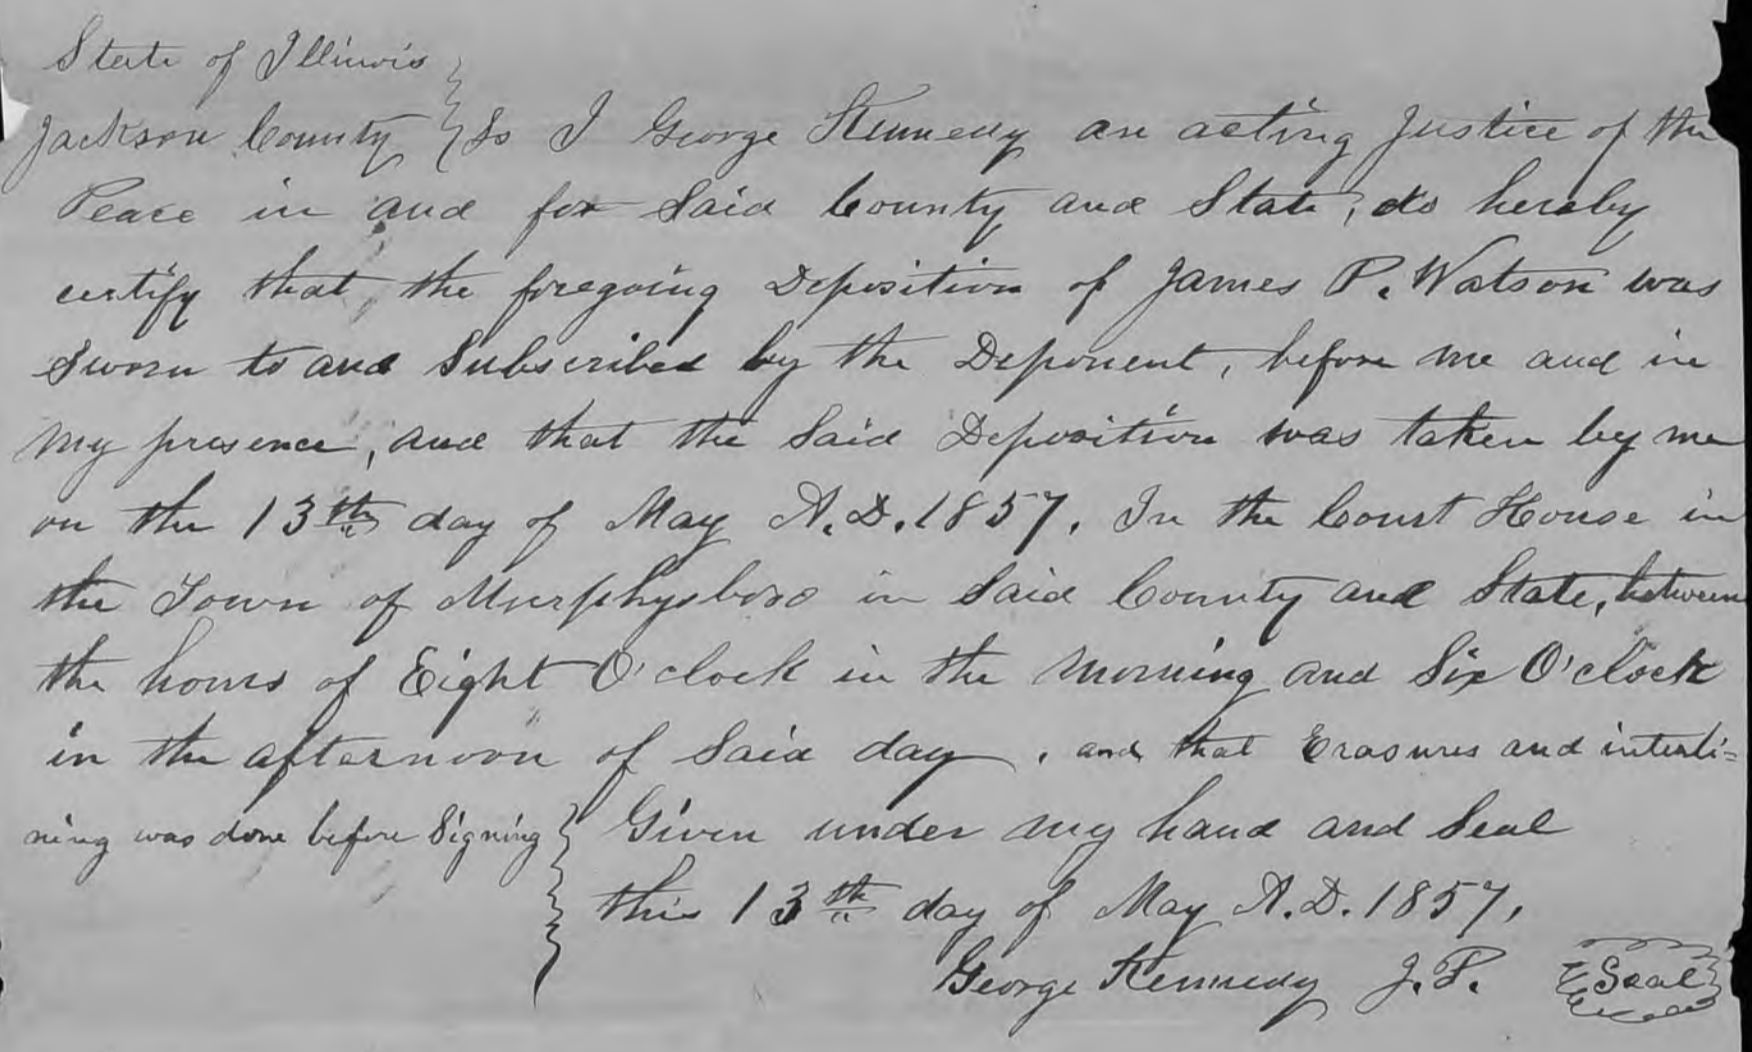 State of Illinois
Jackson County } Ss I George Kennedy an acting Justice of the
Peace in and for Said County and State, do hereby
certify that the foregoing Deposition of James P. Watson was
Sworn to and Subscribed by the Deponent, before me and in
my presence, and that the Said Deposition was taken by me
on the 13th day of May A.D. 1857. In the Court House in
the Town of Murphysboro in Said County and State, between
the hours of Eight O'clock in the morning and Six O'clock
in the afternoon of Said day, and that Erasures and interli=
ning was done before Signing } Given under my hand and Seal
this 13th day of May A.D. 1857,
George Kennedy J.P. Seal